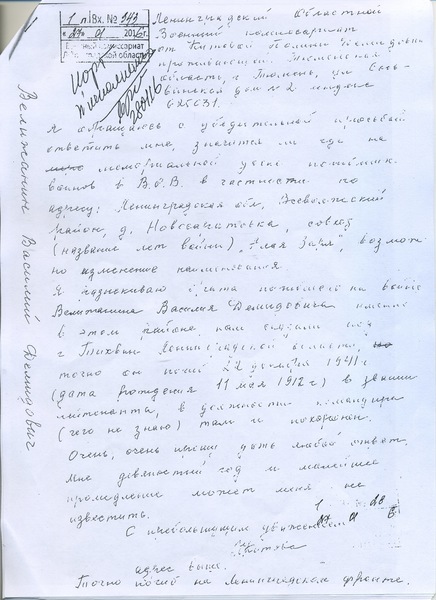 1 п/Вх. № 343
01 2016 г
Военный комиссариат
Ленинградской области
Ленинградский Областной
Военный комиссариат
от
проживающей Тюменская
область, г Тюмень, ул
дом № 2 индекс
625031.
Я обращаюсь с убедительной просьбой
ответить мне, значится ли где на
мемориальной доске погибших
воинов в В.О.В. в частности по
адресу: Ленинградская обл, Всеволожский
район, д. Новосаратовка, совхоз
(название лет войны) "Алая Заря", возмож-
но изменение наименования.
Я разыскиваю брата погибшего на войне
Велижанина Василия Демидовича именно
в этом районе, нам сказали
г Тихвин Ленинградской области,
точно он погиб 22 декабря 1941 г
(дата рождения 11 мая 1912 г) в звании
лейтенанта, в должности командира
(чего не знаю) там и похоронен.
Очень, очень прошу дать любой ответ.
Мне девяностый год и малейшее
промедление может меня не
известить.
С небольшущим уважением
адрес выше.
Точно погиб на Ленинградском фронте.
Велижанин Василий Демидович